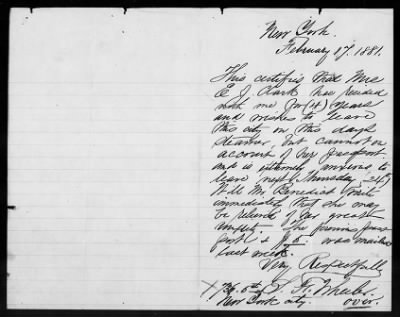 New York.
February 17, 1881.
This certifies that Mrs
E. J. Clark has resided
with me for (14) years
and wishes to leave
this city on this days
steamer, but cannot on
account of her passport
and is extremely anxious to
leave next Thursday, 24th
Will Mr. Benedict
immediately that she may
be relieved of her great
The previous pass
port & $5. was mailed
last week.
Very Respectfully
F. Wheeler
New York city. over.